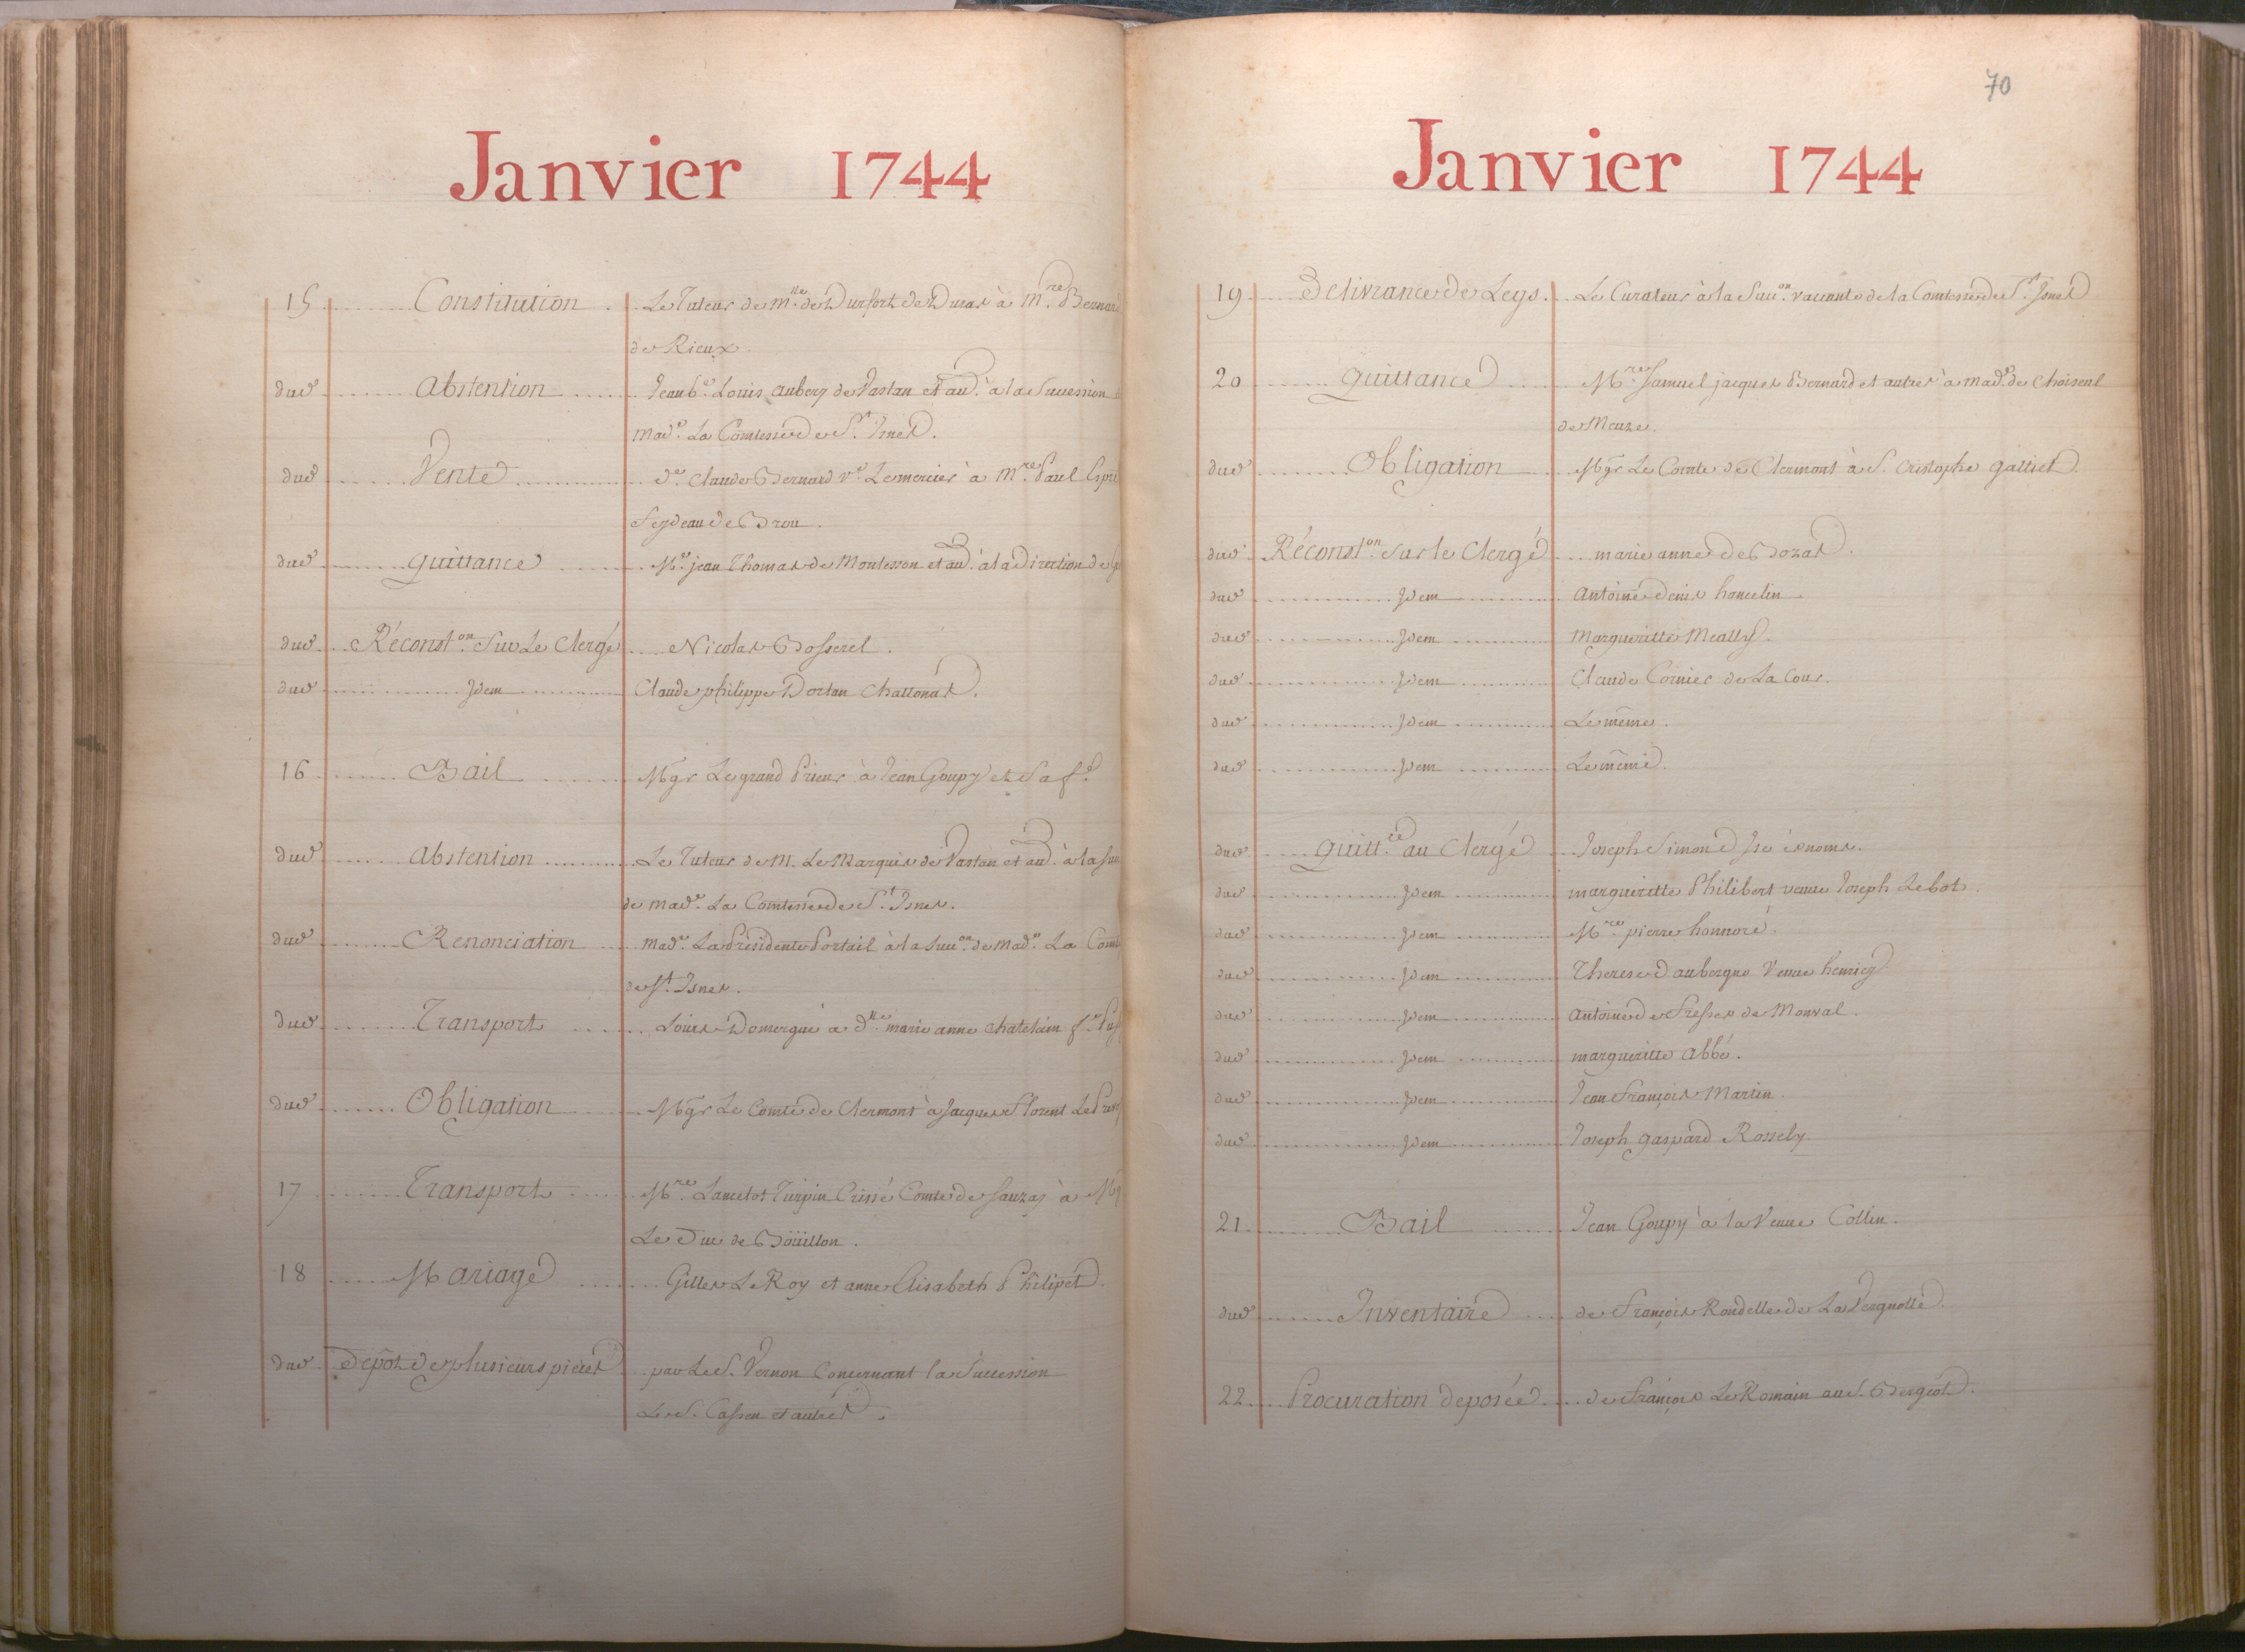 Janvier 1744
15 Constitution Le Tuteur de Mlle de Durfort de Duras à Mre Bernard
de Rieux.
dud Abstention Jean bte Louis Aubery de Vastan et au. à la Succession
Made La Comtesse de St Isnes.
dud Vente De Claude Bernard ve Lemercier à Mre Paul Espri
feydeau de Brou.
dud quittance Mre jean Thomas de Montesson et au. à la Direction de
dud Réconston Sur Le Clergé Nicolas Bosserel.
dud Idem Claude philippe Dortan Chattonas.
16 Bail Mgr Le grand Prieur à Jean Goupy et Sa fe
dud Abstention Le Tuteur de M. Le Marquis de Vastan et au. à la Suc
de Made La Comtesse de St Isnes.
dud Renonciation Made La Présidente Portail à la Succon de Made La Comt
de St Isnes.
dud Transport Louis Domergue à dlle marie anne chatelain fe
dud Obligation Mgr Le Comte de Clermont à Jacques Florent Le
17 Transport Mre Lancelot Turpin Crissé Comte de Sanzay à Mg
Le Duc de Boüillon.
18 Mariage Gilles Le Roy et anne Elisabeth Philipet.
dud Depôt de plusieurs pieces par Le S. Vernon Concernant la Succession
Le S. Cassen et autres.
70
Janvier 1744
19 Delivrance de Legs. Le Curateur à la Succon vaccante de la Comtesse de St Isnes
20 quittance Mre Samuel jacques Bernard et autres à made de Choiseul
de Meuze.
dud Obligation Mgr Le Comte de Clermont à S. Cristophe galliet.
dud Réconston Sur le Clergé marie anne de Bozas.
dud Idem Antoine Denis hancelin.
dud Idem Margueritte Meally.
dud Idem Claude Cornier de La Cour.
dud Idem Le même.
dud Idem Le même.
dud quittce au Clergé Joseph Simon ès noms.
dud Idem margueritte Philibert veuve Joseph Lebot.
dud Idem Mre pierre honnoré.
dud Idem Therese daubergue Veuve henriez
dud Idem Antoine de Fresses de Monval.
dud Idem margueritte abbé.
dud Idem Jean François Martin.
dud Idem Joseph gaspard Rossely
21 Bail Jean Goupy à la Veuve Collin.
dud Inventaire de François Rondelle de La Vergnolle.
22 Procuration deposée de François Le Romain au S. Bergeot.